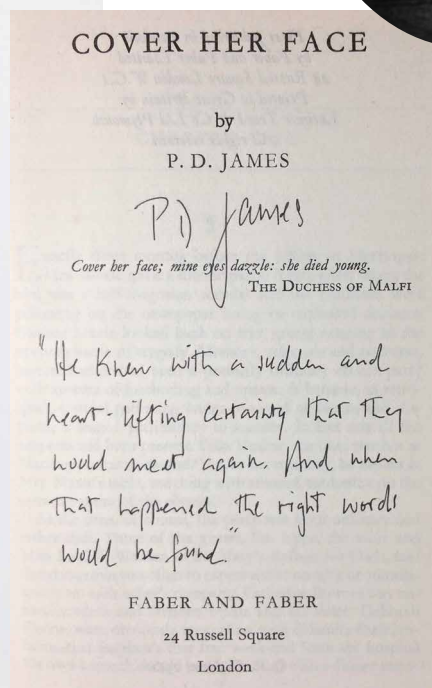 COVER HER FACE
by
P. D. JAMES
P D James
Cover her face; mine eyes dazzle: she died young.
THE DUCHESS OF MALFI
"He knew with a sudden and
heart-lifting certainty that they
would meet again. And when
that happened the right words
would be found."
FABER AND FABER
24 Russell Square
London